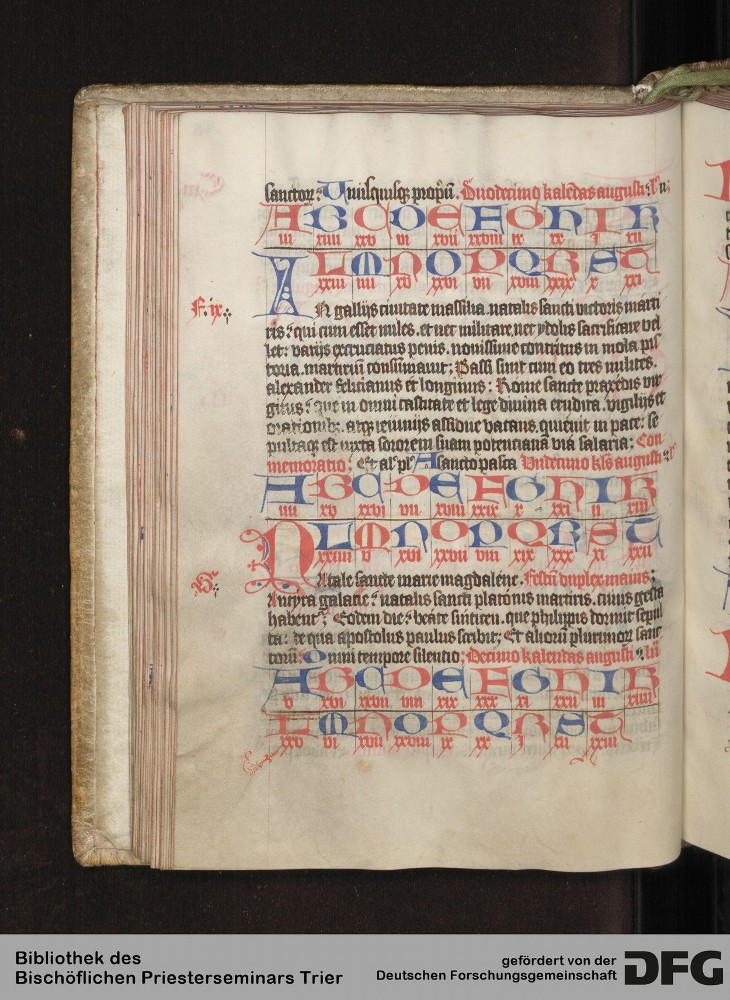 sanctoꝝ: Unusquisqꝫ propriū. Duodecimo kalēdas augusti:
A B C D E F G H I K
iii xiiii xxv vi xvii xxviii ix xx i xii
L M N O P Q R S T
xxiii iiii xv xxvi vii xviii xxix x xxi
F. ix.
IN gallijs ciuitate massilia. natalis sancti victoris marti
ris: qui cum esset miles. et nec militare. nec ydolis sacrificare vel
let: varijs excruciatus penis. nouissime contritus in mola pis
toria. martiriū consūmauit; Passi sunt cum eo tres milites.
alexander felicianus et longinus: Rome sancte praxedis vir
ginis: que in omni castitate et lege diuina erudita. vigilijs et
orationibꝫ. atqꝫ ieiunijs assidue vacans. quieuit in pace: se
pultaqꝫ est iuxta sororem suam potencianā via salaria: Com
memoratio: Et al' pl' A sancto pasca Undecimo kl's augusti
A B C D E F G H I K
iiii xv xxvi vii xviii xxix x xxi ii xiii
L M N O P Q R S T
xxiiii v xvi xxvii viii xix xxx xi xxii
NAtale sancte marie magdalene. Festū duplex maius;
Ancyra galatie: natalis sancti platonis martiris. cuius gesta
habent'. Eodem die: beate sinticen. que philippis dormit sepul
ta: de qua apostolus paulus scribit; Et alioru plurimoꝝ sanc
toru: Omni tempore silentio; Decimo kalendas augusti
A B C D E F G H I K
v xvi xxvii viii xix xxx xi xxii iii xiiii
L M N O P Q R S T
xxv vi xvii xxviii ix xx i xii xxiii
Bibliothek des
Bischöflichen Priesterseminars Trier
gefördert von der
Deutschen Forschungsgemeinschaft
DFG